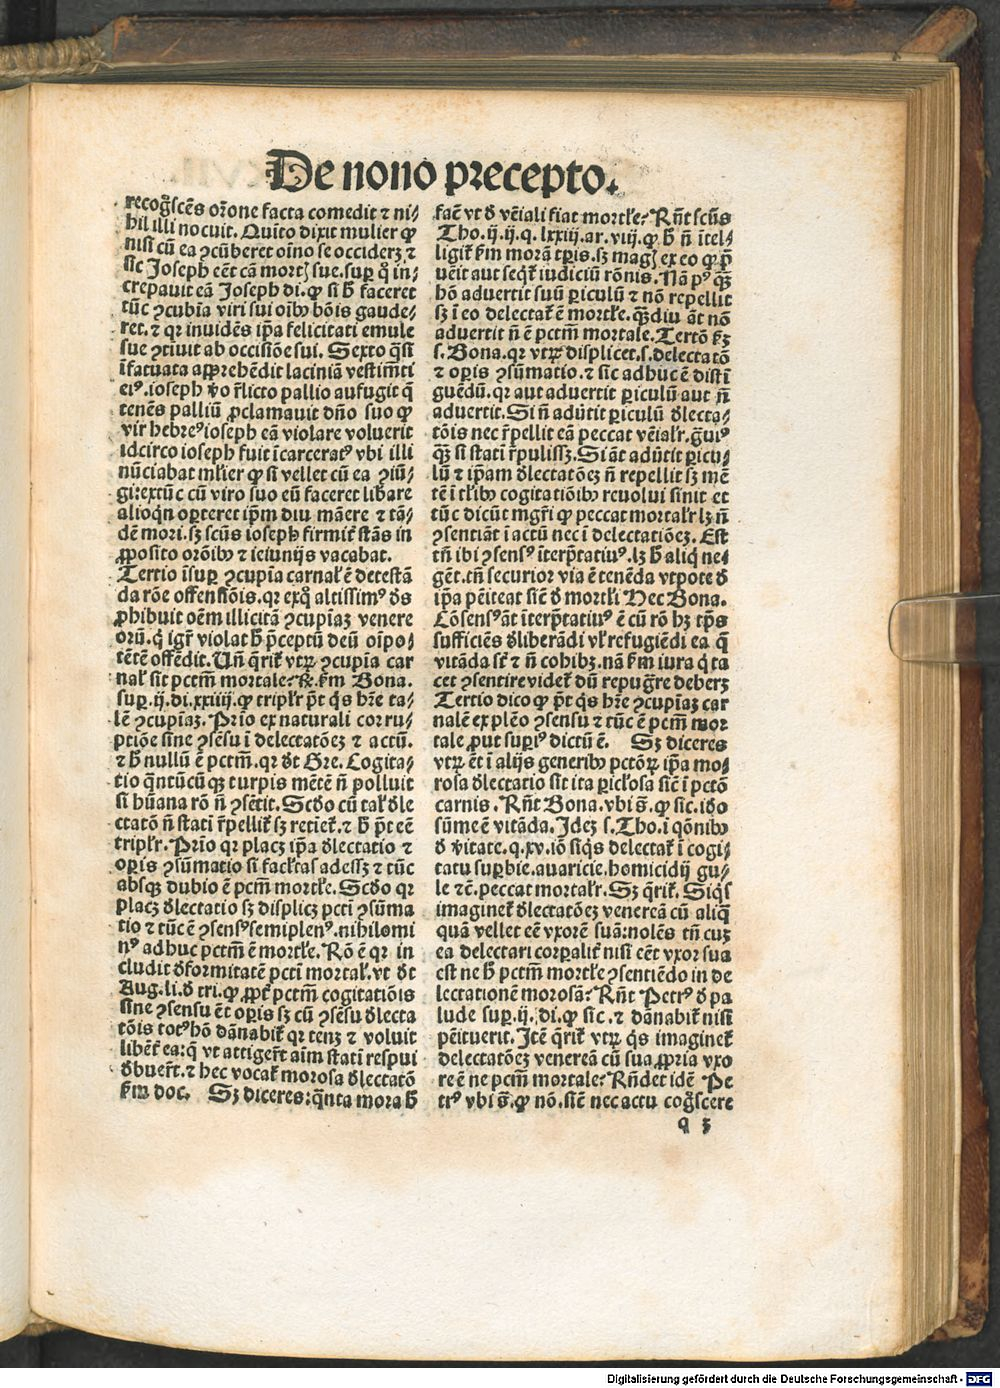 De nono precepto.
recogͦscēs orōne facta comedit ⁊ ni⸗
hil illi nocuit. Quīto dixit mulier ꝙ
nisi cū ea ꝯcūberet oīno se occiderꝫ ⁊
sic Joseph eēt cā mortꝭ sue. suꝑ qͦ in⸗
crepauit eā Joseph di. ꝙ si ħ faceret
tūc ꝯcubīa viri sui oībꝰ bōis gaude⸗
ret. ⁊ qꝛ inuidēs ip̄a felicitati emule
sue ꝯtiuit ab occisiōe sui. Sexto q̄si
īfatuata apprehēdit laciniā vestimēti
eiꝰ. ioseph v̊o r̄licto pallio aufugit q̄
tenēs palliū ꝓclamauit dn̄o suo ꝙ
vir hebreꝰ ioseph eā violare voluerit
idcirco ioseph fuit īcarceratꝰ vbi illi
nūciabat mlier ꝙ si vellet cū ea ꝯiū⸗
gi: extūc cū viro suo eū faceret libare
alioqͥn oꝑteret ip̄m diu māere ⁊ tā⸗
dē mori. sꝫ scūs ioseph firmit̄ stās in
ꝓposito orōibꝰ ⁊ ieiunijs vacabat.
Tertio īsuꝑ ꝯcupīa carnał ē detestā
da rōe offensiōis. qꝛ exqͦ altissimꝰ ds̄
ꝓhibuit oēm illicitā ꝯcupīaꝫ venere
orū. qͥ igr̄ violat ħ p̄ceptū deū oīpo⸗
tētē offēdit. Un̄ q̄rit̄ vtꝝ ꝯcupīa car
nał sit pctm̄ mortale? ℟. ẜm Bona.
suꝑ. ij. di. xxiiij. ꝙ tripłr pt̄ qͥs hr̄e ta⸗
lē ꝯcupīaꝫ. Prīo ex naturali corru⸗
ptiōe sine ꝯsēsu ī delectatōeꝫ ⁊ actū.
⁊ ħ nullū ē pctm̄. qꝛ dt̄ Gre. Cogita⸗
tio q̄ntūcūqꝫ turpis mētē n̄ polluit
si hūana rō n̄ ꝯsētit. Scd̄o cū tał dle
ctatō n̄ stati r̄pellit̄ sꝫ retiet̄. ⁊ ħ pt̄ eē
tripłr. Prīo qꝛ placꝫ ip̄a dlectatio ⁊
oꝑis ꝯsūmatio si facłtas adessꝫ ⁊ tūc
absqꝫ dubio ē pcm̄ mortłe. Scd̄o qꝛ
placꝫ dlectatio sꝫ displicꝫ pcti ꝯsūma
tio ⁊ tūc ē ꝯsensꝰ semiplenꝰ. nihilomi
nꝰ adhuc pctm̄ ē mortłe. Rō ē qꝛ in
cludit dformitatē pcti mortał. vt dt̄
Aug. li. d tri. ꝙ ꝓpt̄ pctm̄ cogitatiōis
sine ꝯsensu ēt oꝑis sꝫ cū ꝯsēsu dlecta
tōis totꝰ hō dānabit̄ qꝛ tenꝫ ⁊ voluit
libēt̄ ea: q̄ vt attigerūt aīm stati respui
dbuer̄t. ⁊ hec vocat̄ morosa dlectatō
ẜm doc. Sꝫ diceres: q̄nta mora ħ
fac̄ vt d vēiali fiat mortłe? Rn̄t scūs
Tho. ij. ij. q. lxxiij. ar. viij. ꝙ ħ n̄ ītel⸗
ligit̄ ẜm morā tꝑis. sꝫ magꝭ ex eo ꝙ p̄
uēit aut seqͥt̄ iudiciū rōnis. Nā pꝰqͣꝫ
hō aduertit suū ꝑiculū ⁊ nō repellit
sꝫ ī eo delectat̄ ē mortłe. qͣꝫdiu āt nō
aduertit n̄ ē pctm̄ mortale. Tertō ẜm
s. Bona. qꝛ vtꝝ displicet. s. delectatō
⁊ oꝑis ꝯsūmatio. ⁊ sic adhuc ē distī
guēdū. qꝛ aut aduertit ꝑiculū aut n̄
aduertit. Si n̄ adūtit ꝑiculū dlecta⸗
tōis nec r̄pellit eā peccat vēiałr. gͣuiꝰ
qͣꝫ si stati r̄pulissꝫ. Si āt adūtit ꝑicu⸗
lū ⁊ ip̄am dlectatōeꝫ n̄ repellit sꝫ mē
tē ī tłibꝰ cogitatiōibꝰ reuolui sinit et
tūc dicūt mgr̄i ꝙ peccat mortałr lꝫ n̄
ꝯsentiāt ī actū nec ī delectatiōeꝫ. Est
tn̄ ibi ꝯsensꝰ īterp̄tatiuꝰ. lꝫ ħ aliqͥ ne⸗
gēt. tn̄ securior via ē tenēda vtpote d
ip̄a pēiteat sic̄ d mortłi Nec Bona.
Cōsensꝰ āt īterp̄tatiuꝰ ē cū rō hꝫ tp̄s
sufficiēs dliberādi vł refugiēdi ea q̄
vitāda sc̄t ⁊ n̄ cohibꝫ. nā ẜm iura qͥ ta
cet ꝯsentire videt̄ dū repugͣre deberꝫ
Tertio dico ꝙ pt̄ qͥs hr̄e ꝯcupīaꝫ car
nalē ex plēo ꝯsensu ⁊ tūc ē pcm̄ mor
tale ꝓut suꝑiꝰ dictū ē. Sꝫ diceres
vtꝝ ēt ī alijs generibꝰ pctōꝝ ip̄a mo⸗
rosa dlectatio sit ita ꝑicłosa sic̄ ī pctō
carnis. Rn̄t Bona. vbi s̄. ꝙ sic. ido
sūme ē vitāda. Ideꝫ s. Tho. ī qōnibꝰ
d v̄itate. q. xv. iō siqͥs delectat̄ ī cogi⸗
tatu suꝑbie. auaricie. homicidij gu⸗
le ⁊c̄. peccat mortałr. Sꝫ q̄rit̄. Siqͥs
imaginet̄ dlectatōeꝫ venereā cū aliqͣ
quā vellet eē vxorē suā: nolēs tn̄ cuꝫ
ea delectari corꝑalit̄ nisi eēt vxor sua
est ne ħ pctm̄ mortłe ꝯsentiēdo in de
lectationē morosā? Rn̄t Petrꝰ d pa
lude suꝑ. ij. di. ꝙ sic. ⁊ dānabit̄ nisi
pēituerit. Itē q̄rit̄ vtꝝ qͥs imaginet̄
delectatōeꝫ venereā cū sua ꝓpria vxo
re ē ne pcm̄ mortale? Rn̄det idē Pe
trꝰ vbi s̄. ꝙ nō. sic̄ nec actu cogͦscere
q 3
Digitalisierung gefördert durch die Deutsche Forschungsgemeinschaft - DFG